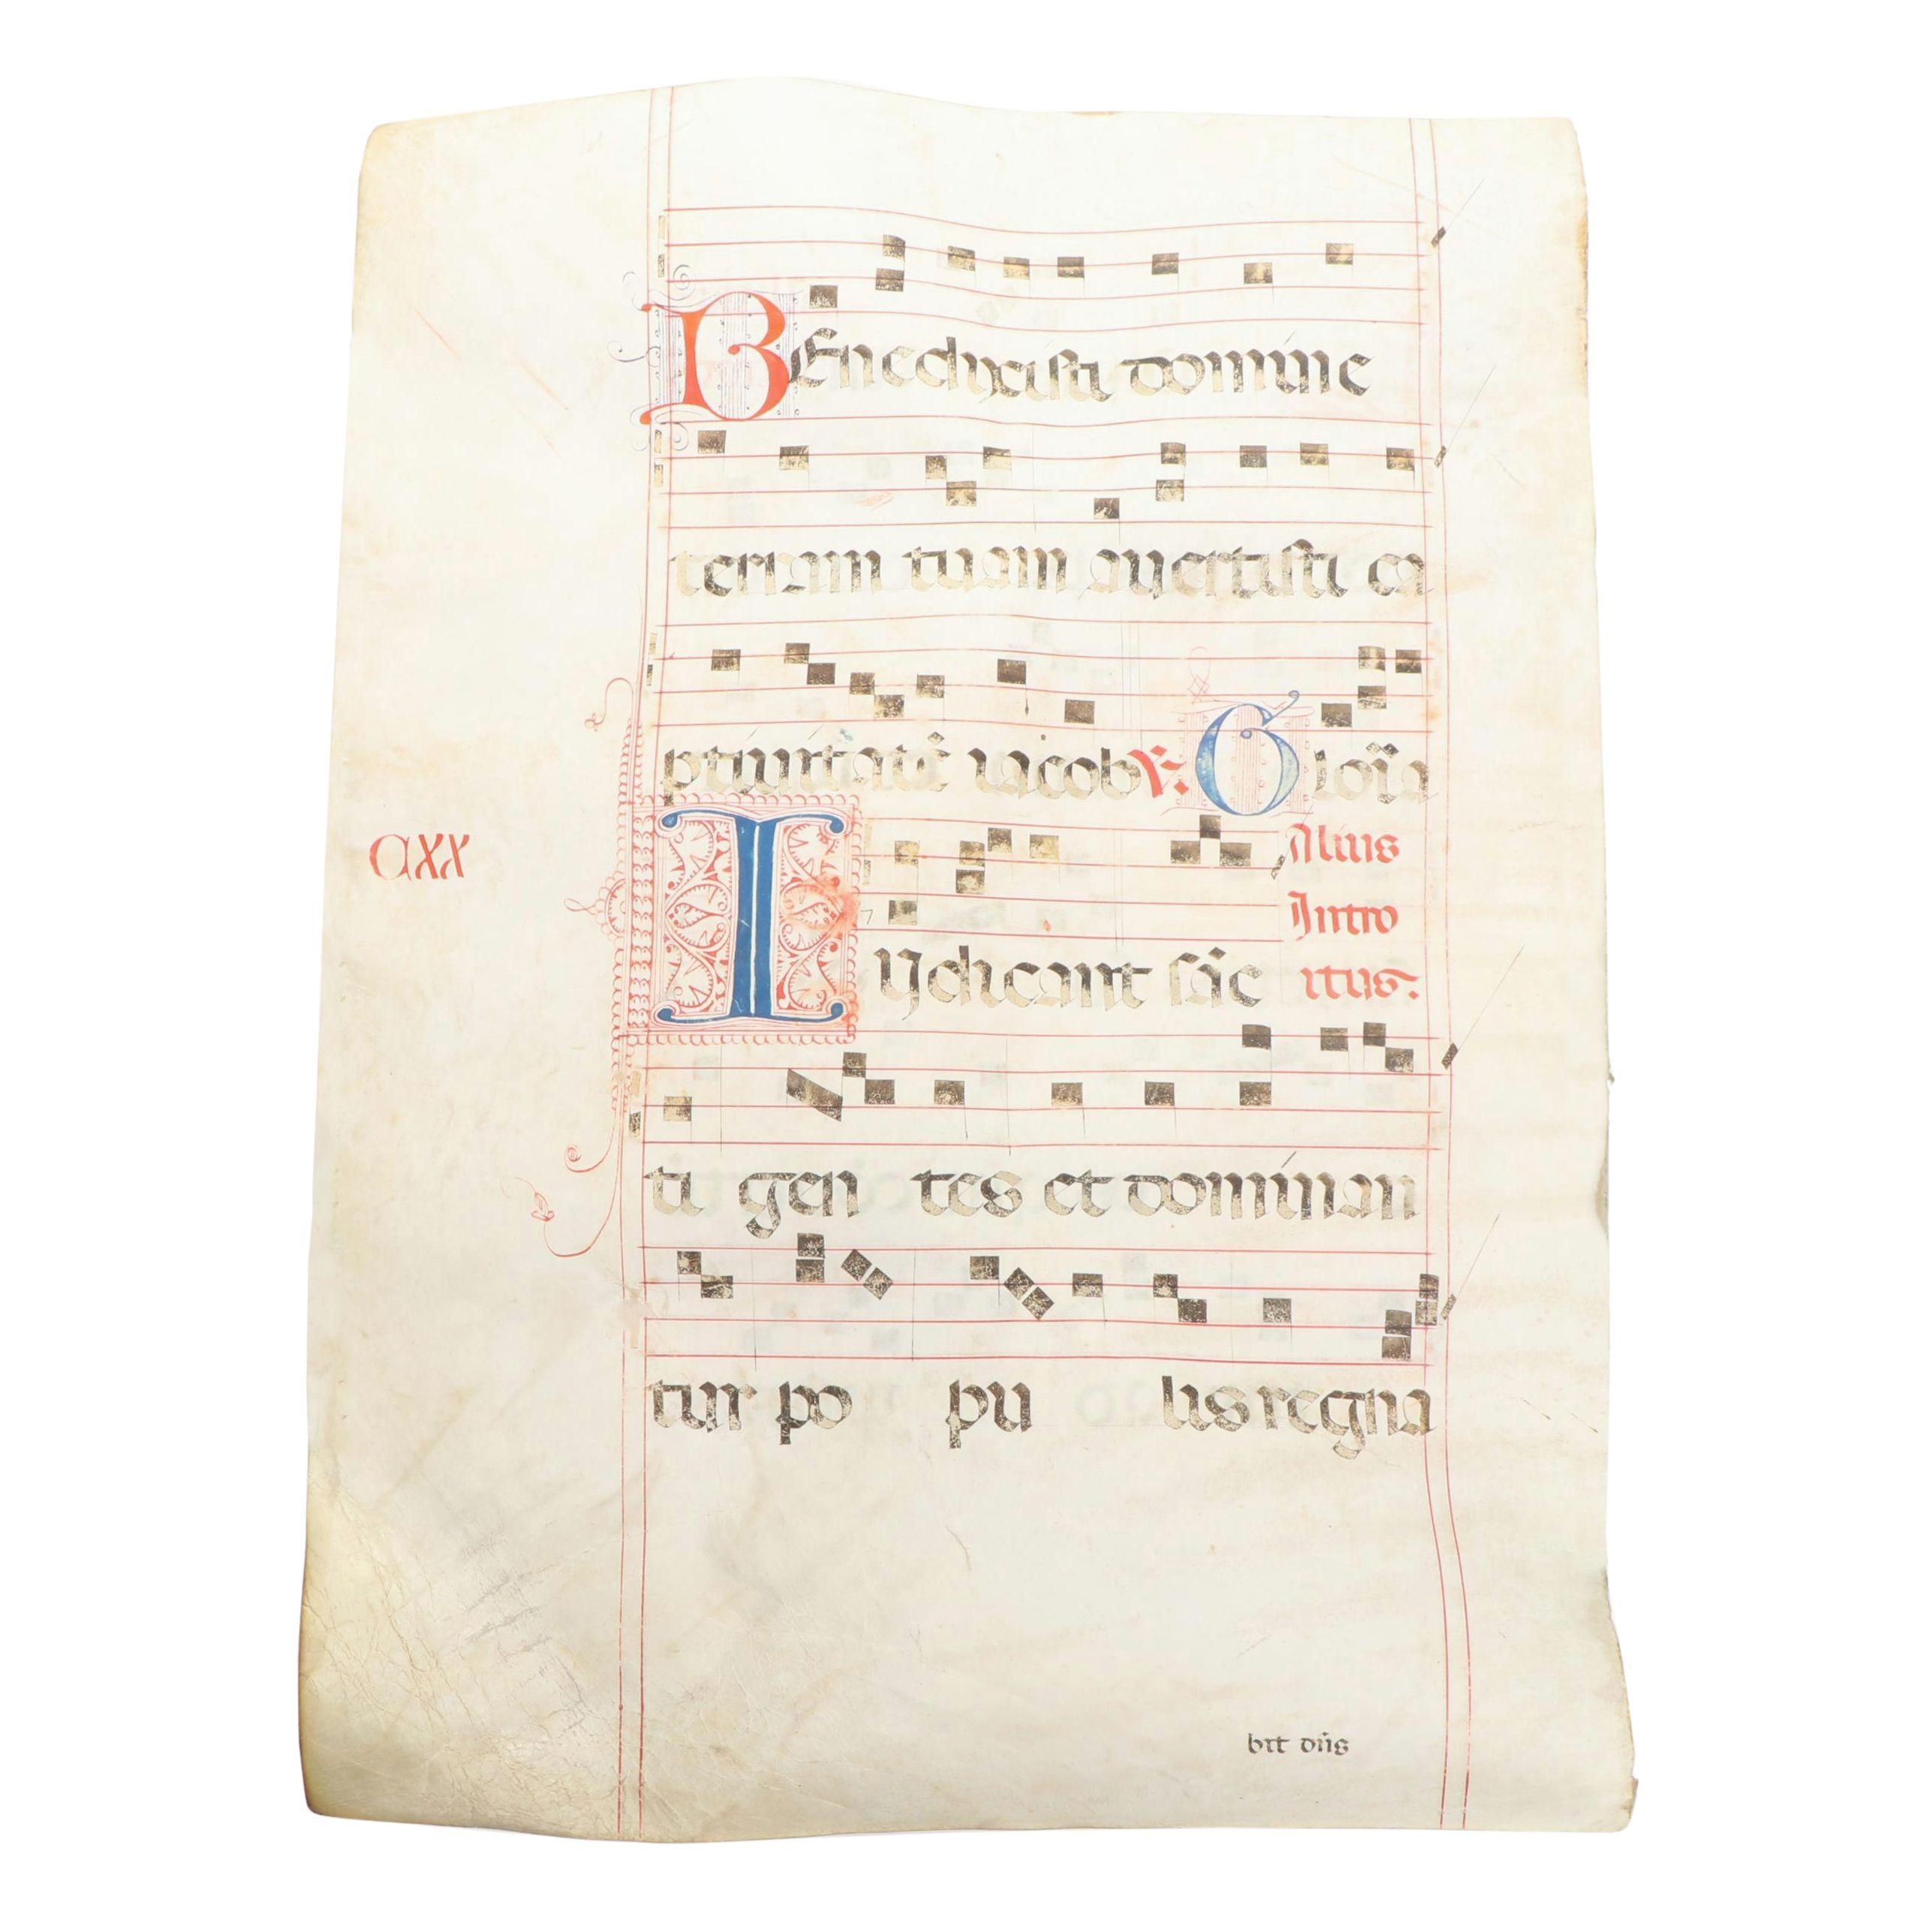 BEnedixisti domine
terram tuam auertisti ca
ptiuitatē iacob ℣. Gloria
Alius
CXX
Intro
IUdicant sāc
itus.
ti gentes et dominan
tur populis regna
bit dn̄s